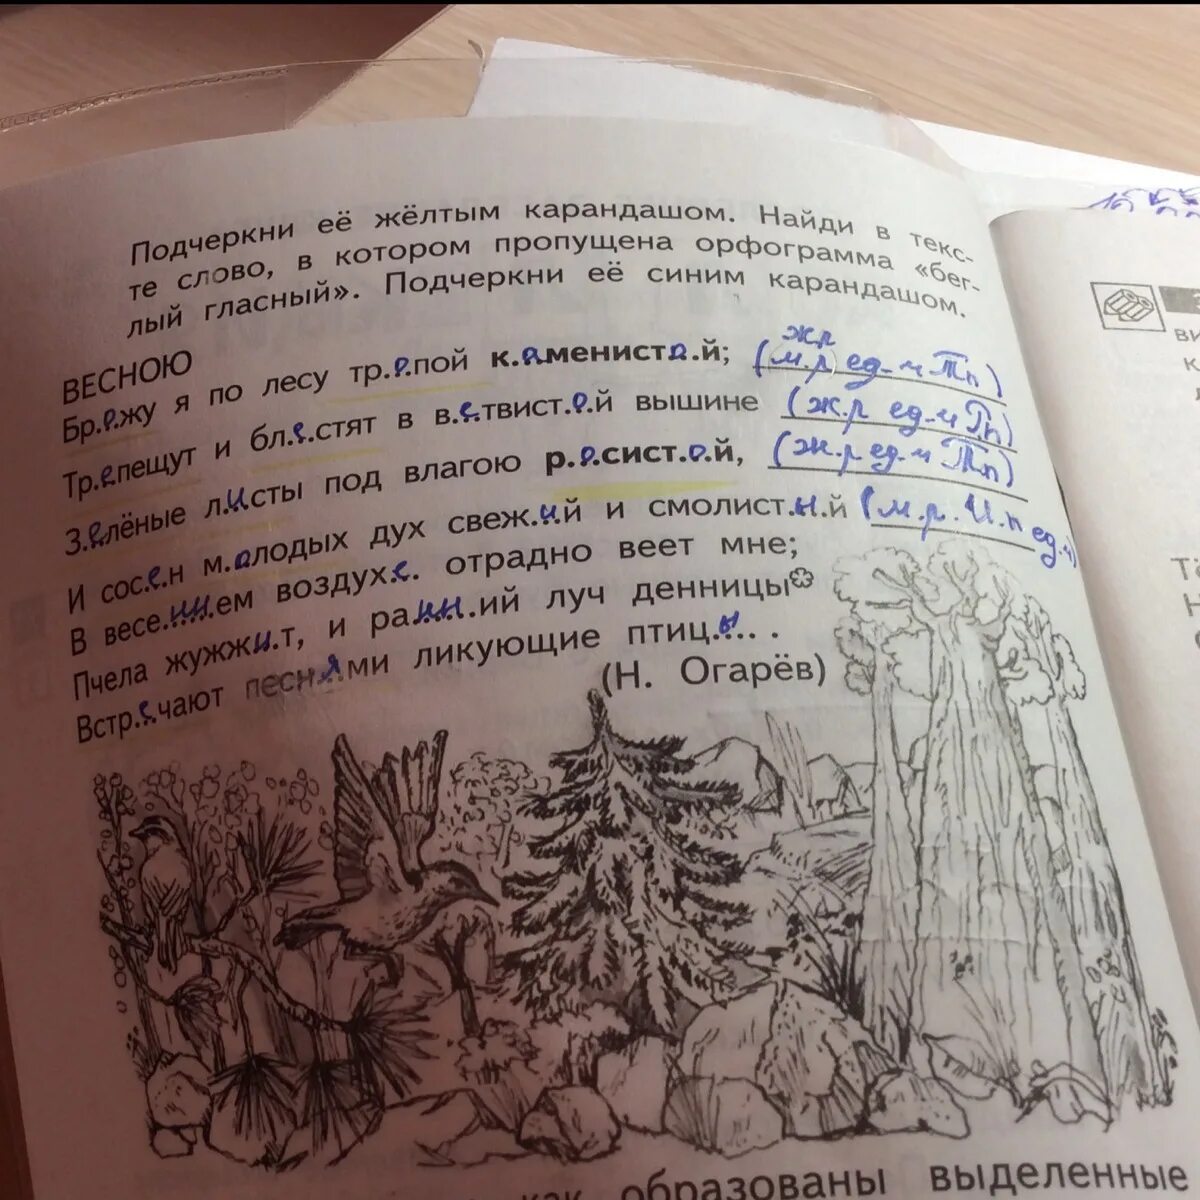 Подчеркни её жёлтым карандашом. Найди в текс-
те слово, в котором пропущена орфограмма «бег-
лый гласный». Подчеркни её синим карандашом.
ВЕСНОЮ
Бр.о.жу я по лесу тр.о.пой к.а.менист.о.й; (м.р ед-ч Тп)
ж.р
Тр.е.пещут и бл.е.стят в в.е.твист.о.й вышине (ж.р ед-ч Пп)
З.е.лёные л.и.сты под влагою р.о.сист.о.й, (ж.р ед-ч Тп)
И сос.е.н м.о.лодых дух свеж.и.й и смолист.ы.й (м.р. И.п ед.ч)
В весе.нн.ем воздух.е. отрадно веет мне;
Пчела жужж.и.т, и ра.нн.ий луч денницы
Встр.е.чают песн.я.ми ликующие птиц.ы. .
(Н. Огарёв)
как образованы выделенные
ви
к